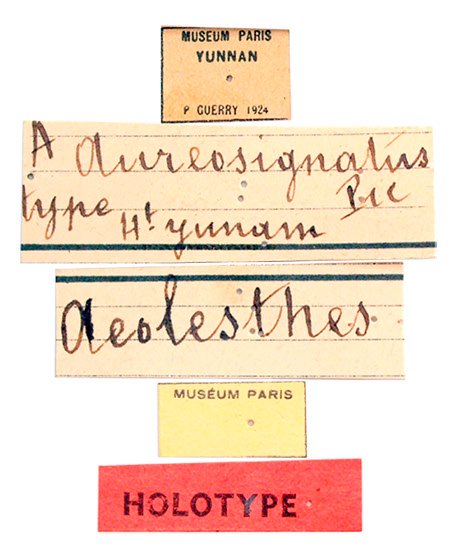 MUSEUM PARIS
YUNNAN
P GUERRY 1924
A aureosignatus
Pic
type Ht yunam
Aeolesthes
MUSÉUM PARIS
HOLOTYPE